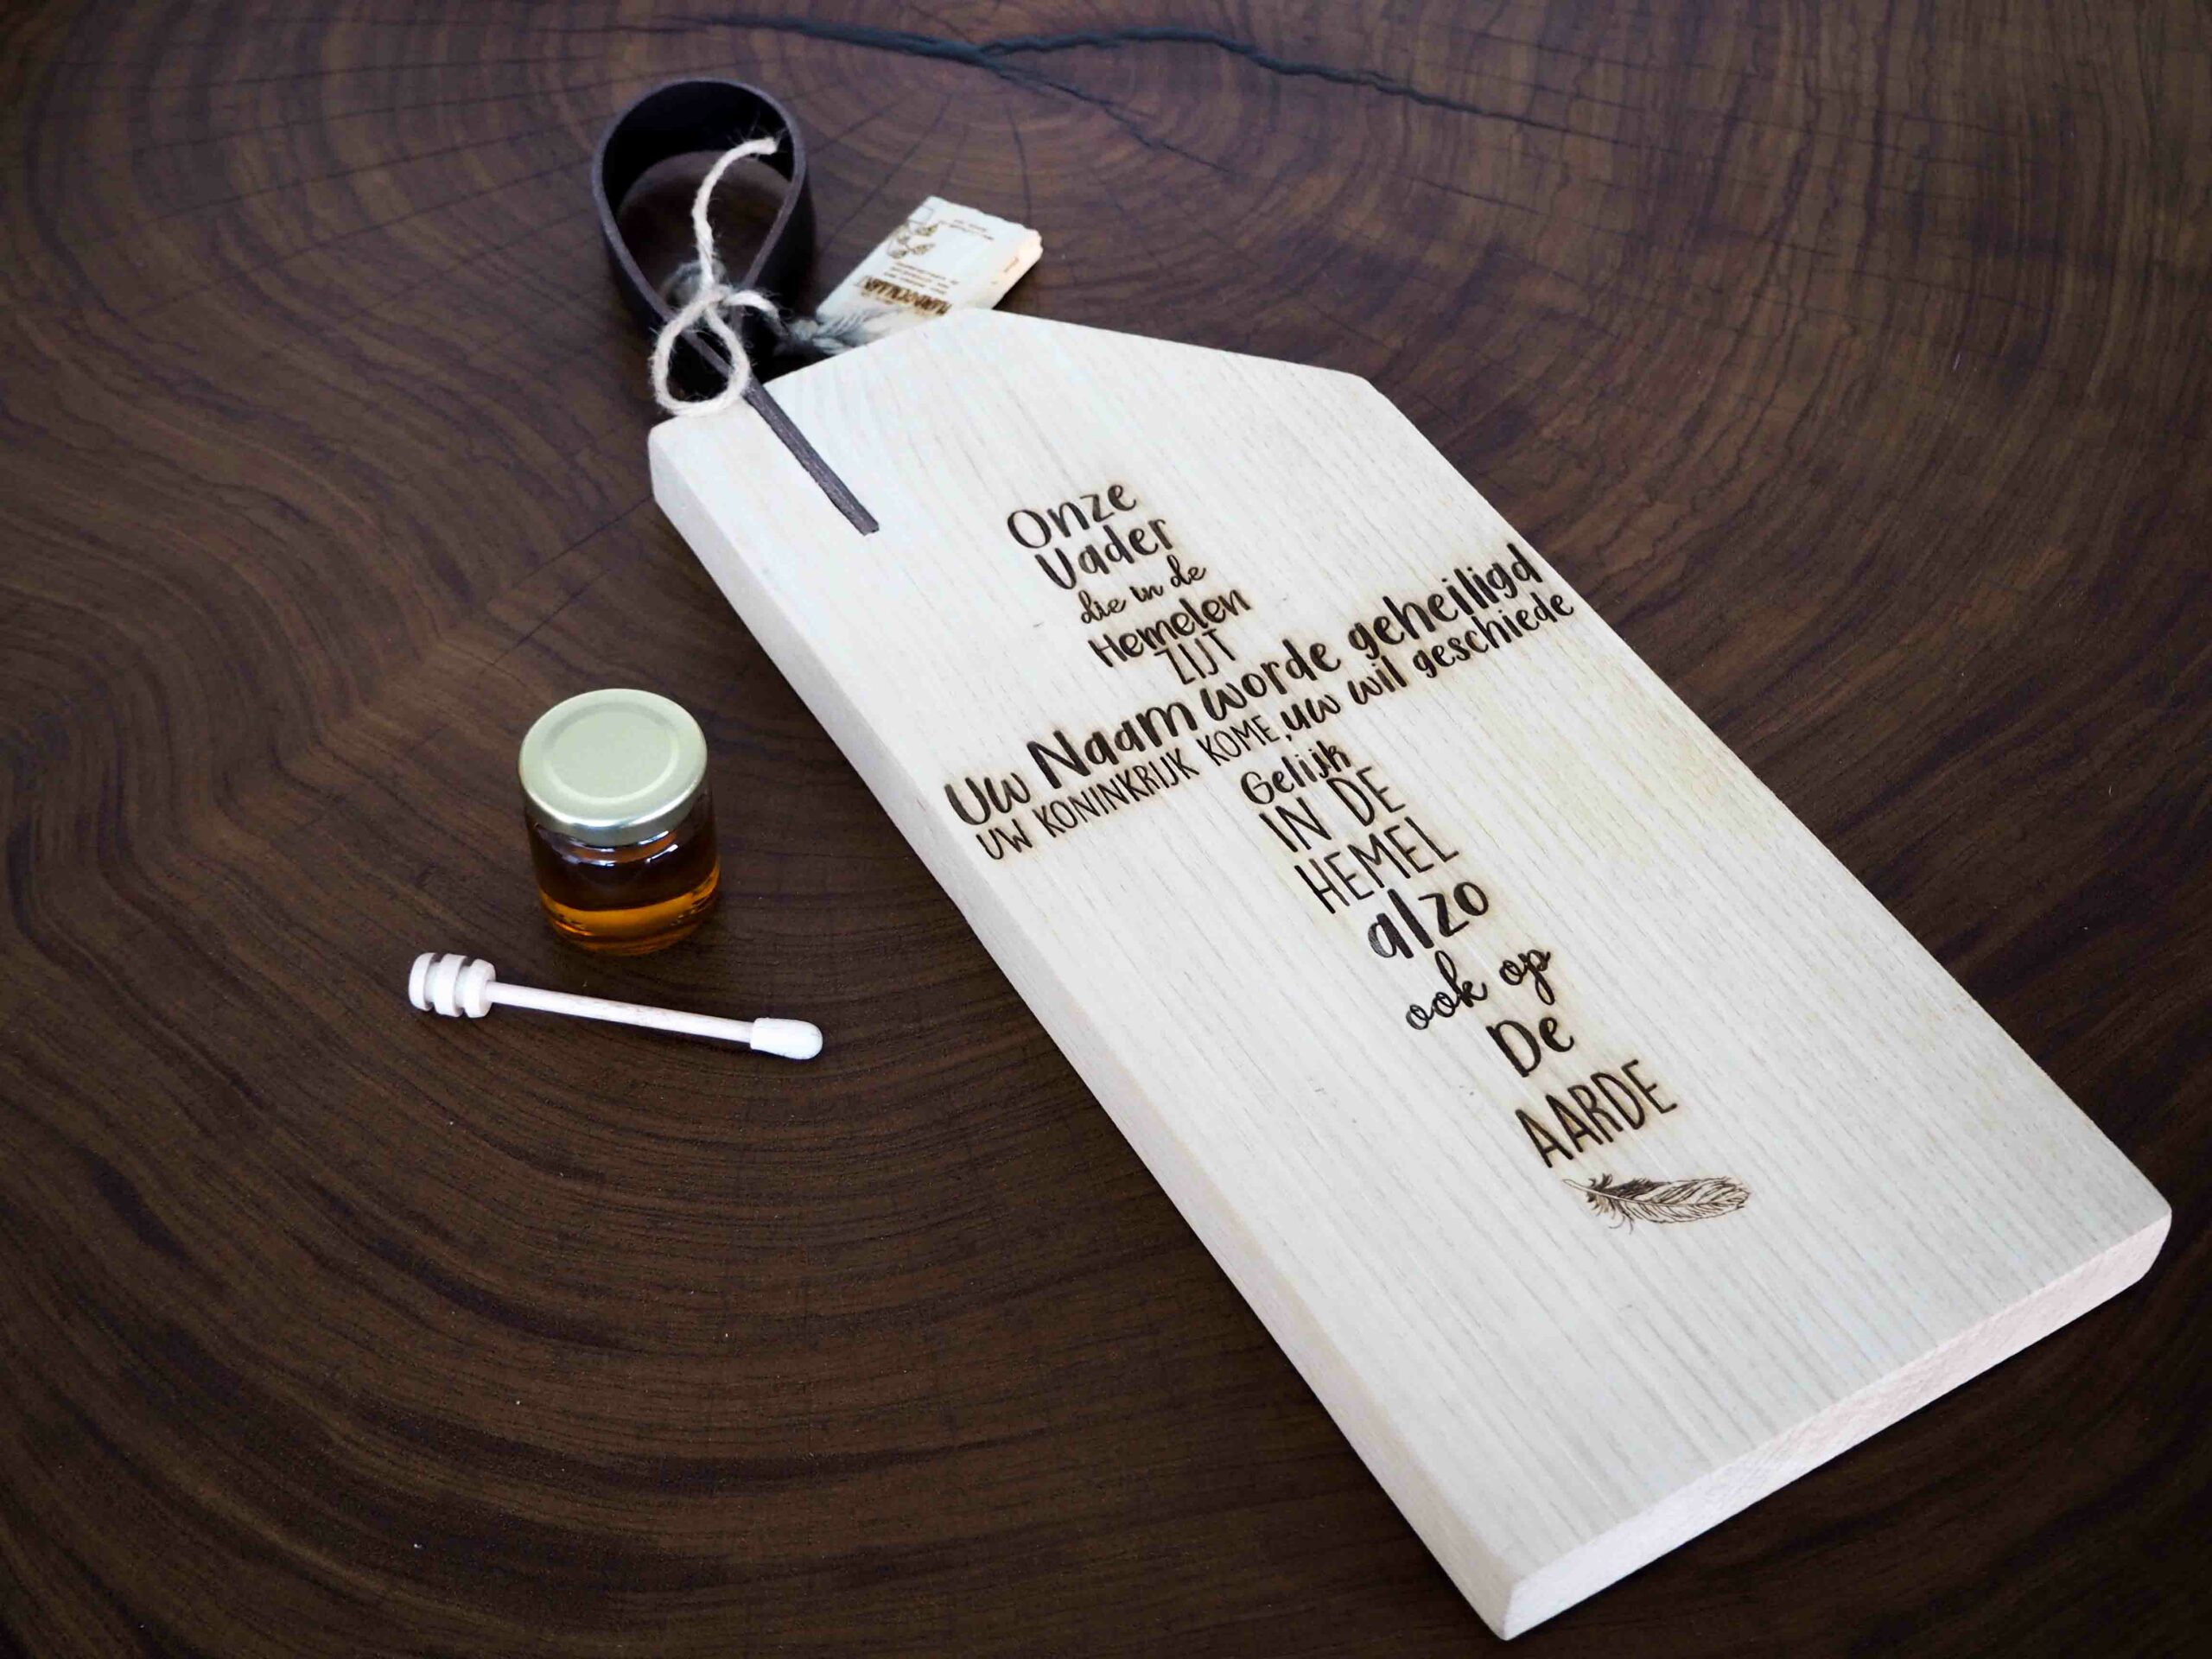 Onze
Vader
die in de
Hemelen
ZIJT
Uw Naam worde geheiligd
UW KONINKRIJK KOME, uw wil geschiede
Gelijk
IN DE
HEMEL
alzo
ook op
De
AARDE